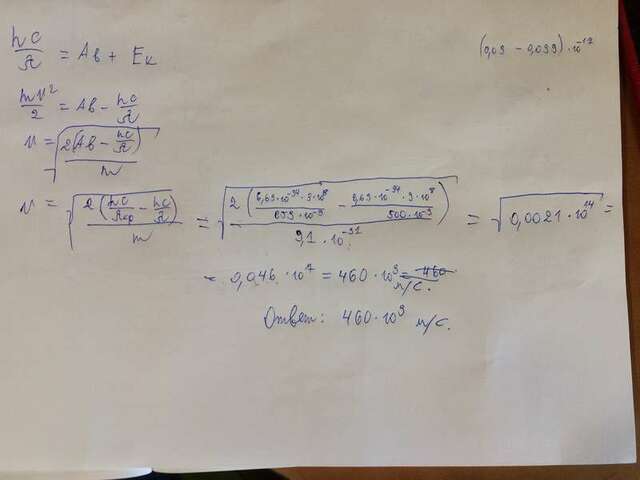 hc/λ = Aв + Eк
(0,03 - 0,039)·10⁻¹⁷
mv²/2 = Aв - hc/λ
v = √(2(Aв - hc/λ)/m)
v = √(2(hc/λкр - hc/λ)/m) = √(2(6,63·10⁻³⁴·3·10⁸/653·10⁻⁹ - 6,63·10⁻³⁴·3·10⁸/500·10⁻⁹)/9,1·10⁻³¹) = √(0,0021·10¹⁴) =
= 0,046·10⁷ = 460·10³ м/с.
Ответ: 460·10³ м/с.